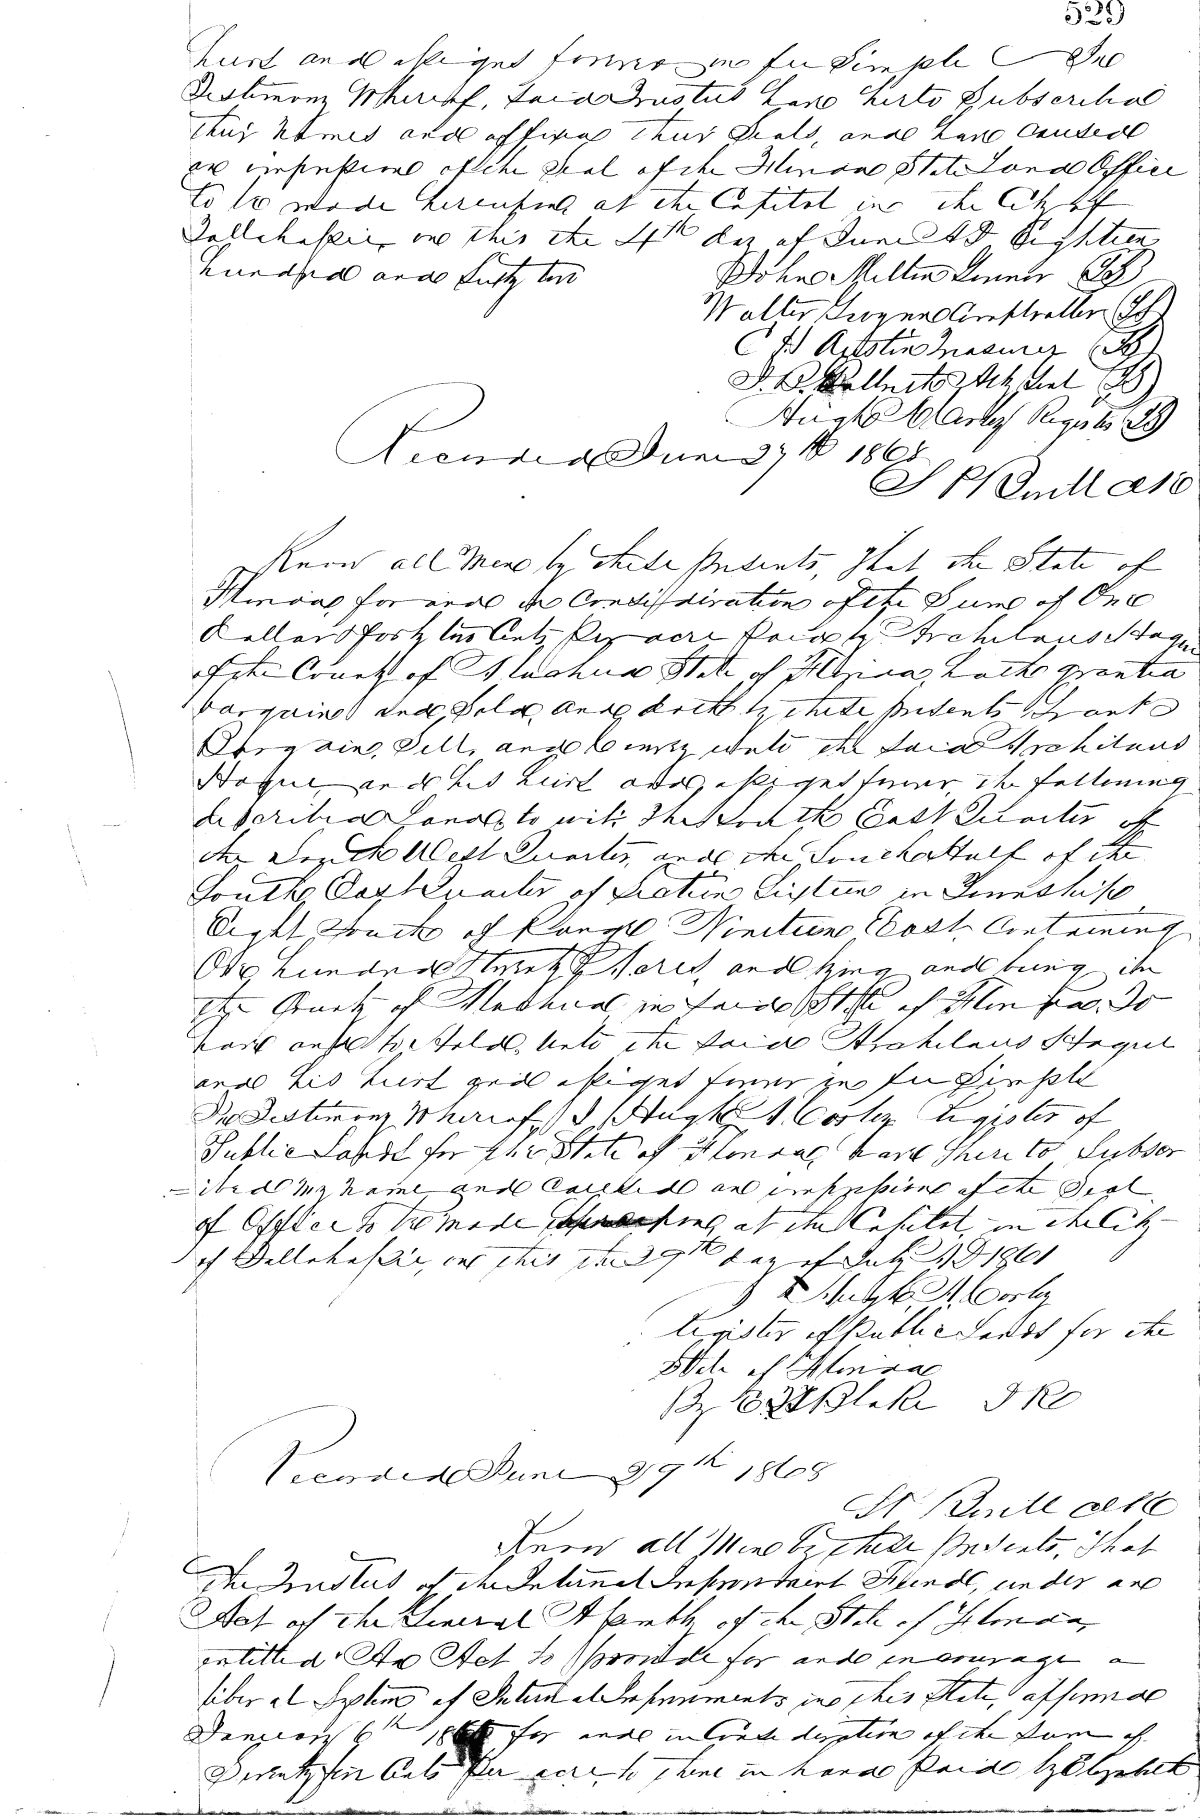 529
heirs and assigns forever in fee Simple In
Testimony Whereof, Said Trustees have herto Subscribed
their Names and affixed their Seals, and have caused
an impression of the Seal of the Florida State Land Office
to be made hereupon at the Capitol in the City of
Tallahassee, on this the 4th day of June A D Eighteen
hundred and Sixty two John Milton Govnor
Walter Gwynn Comptroller
C H Austin Treasurer
Atty Genl
Hugh A Corley Register
Recorded June 27th 1868
Clk
Know all Men by these presents, That the State of
Florida, for and in Consideration of the Sum of One
Dollars forty two Cents Per acre Paid by Archelaus Hague
of the County of Alachua State of Florida, hath granted
bargained and Sold, and doth by these presents Grant
Bargain, Sell, and Convey unto the Said Archilaus
Hague, and his heirs and assigns forever, the following
described Lands, to wit: The South East Quarter of
the South West Quarter, and the South Half of the
South East Quarter of Section Sixteen in Township
Eight South of Range Nineteen East, Containing
One hundred & twenty Acres, and lying and being in
the County of Alachua, in Said State of Florida. To
have and to Hold, Unto the Said Archelaus Hague
and his heirs and assigns forever in fee Simple
In Testimony Whereof, I, Hugh A. Corley Register of
Public Lands for the State of Florida, have hereto Subscr
=ibed My Name and Caused an impression of the Seal
of Office to be made at the Capitol, in the City
of Tallahassee, on this the 29th day of July A D 1861
Hugh A. Corley
Register of Public Lands for the
State of Florida
By Blake
Recorded June 29th 1868
Clk
Know all Men by these presents, That
The Trustees of the Internal Improvement Fund, under an
Act of the General Assembly of the State of Florida,
entitled "An Act to provide for and encourage a
liberal System of Internal Improvements in this State, approved
January 6th for and in Consideration of the Sum of
Seventy five Cents Per acre, to them in hand Paid by Elizabeth